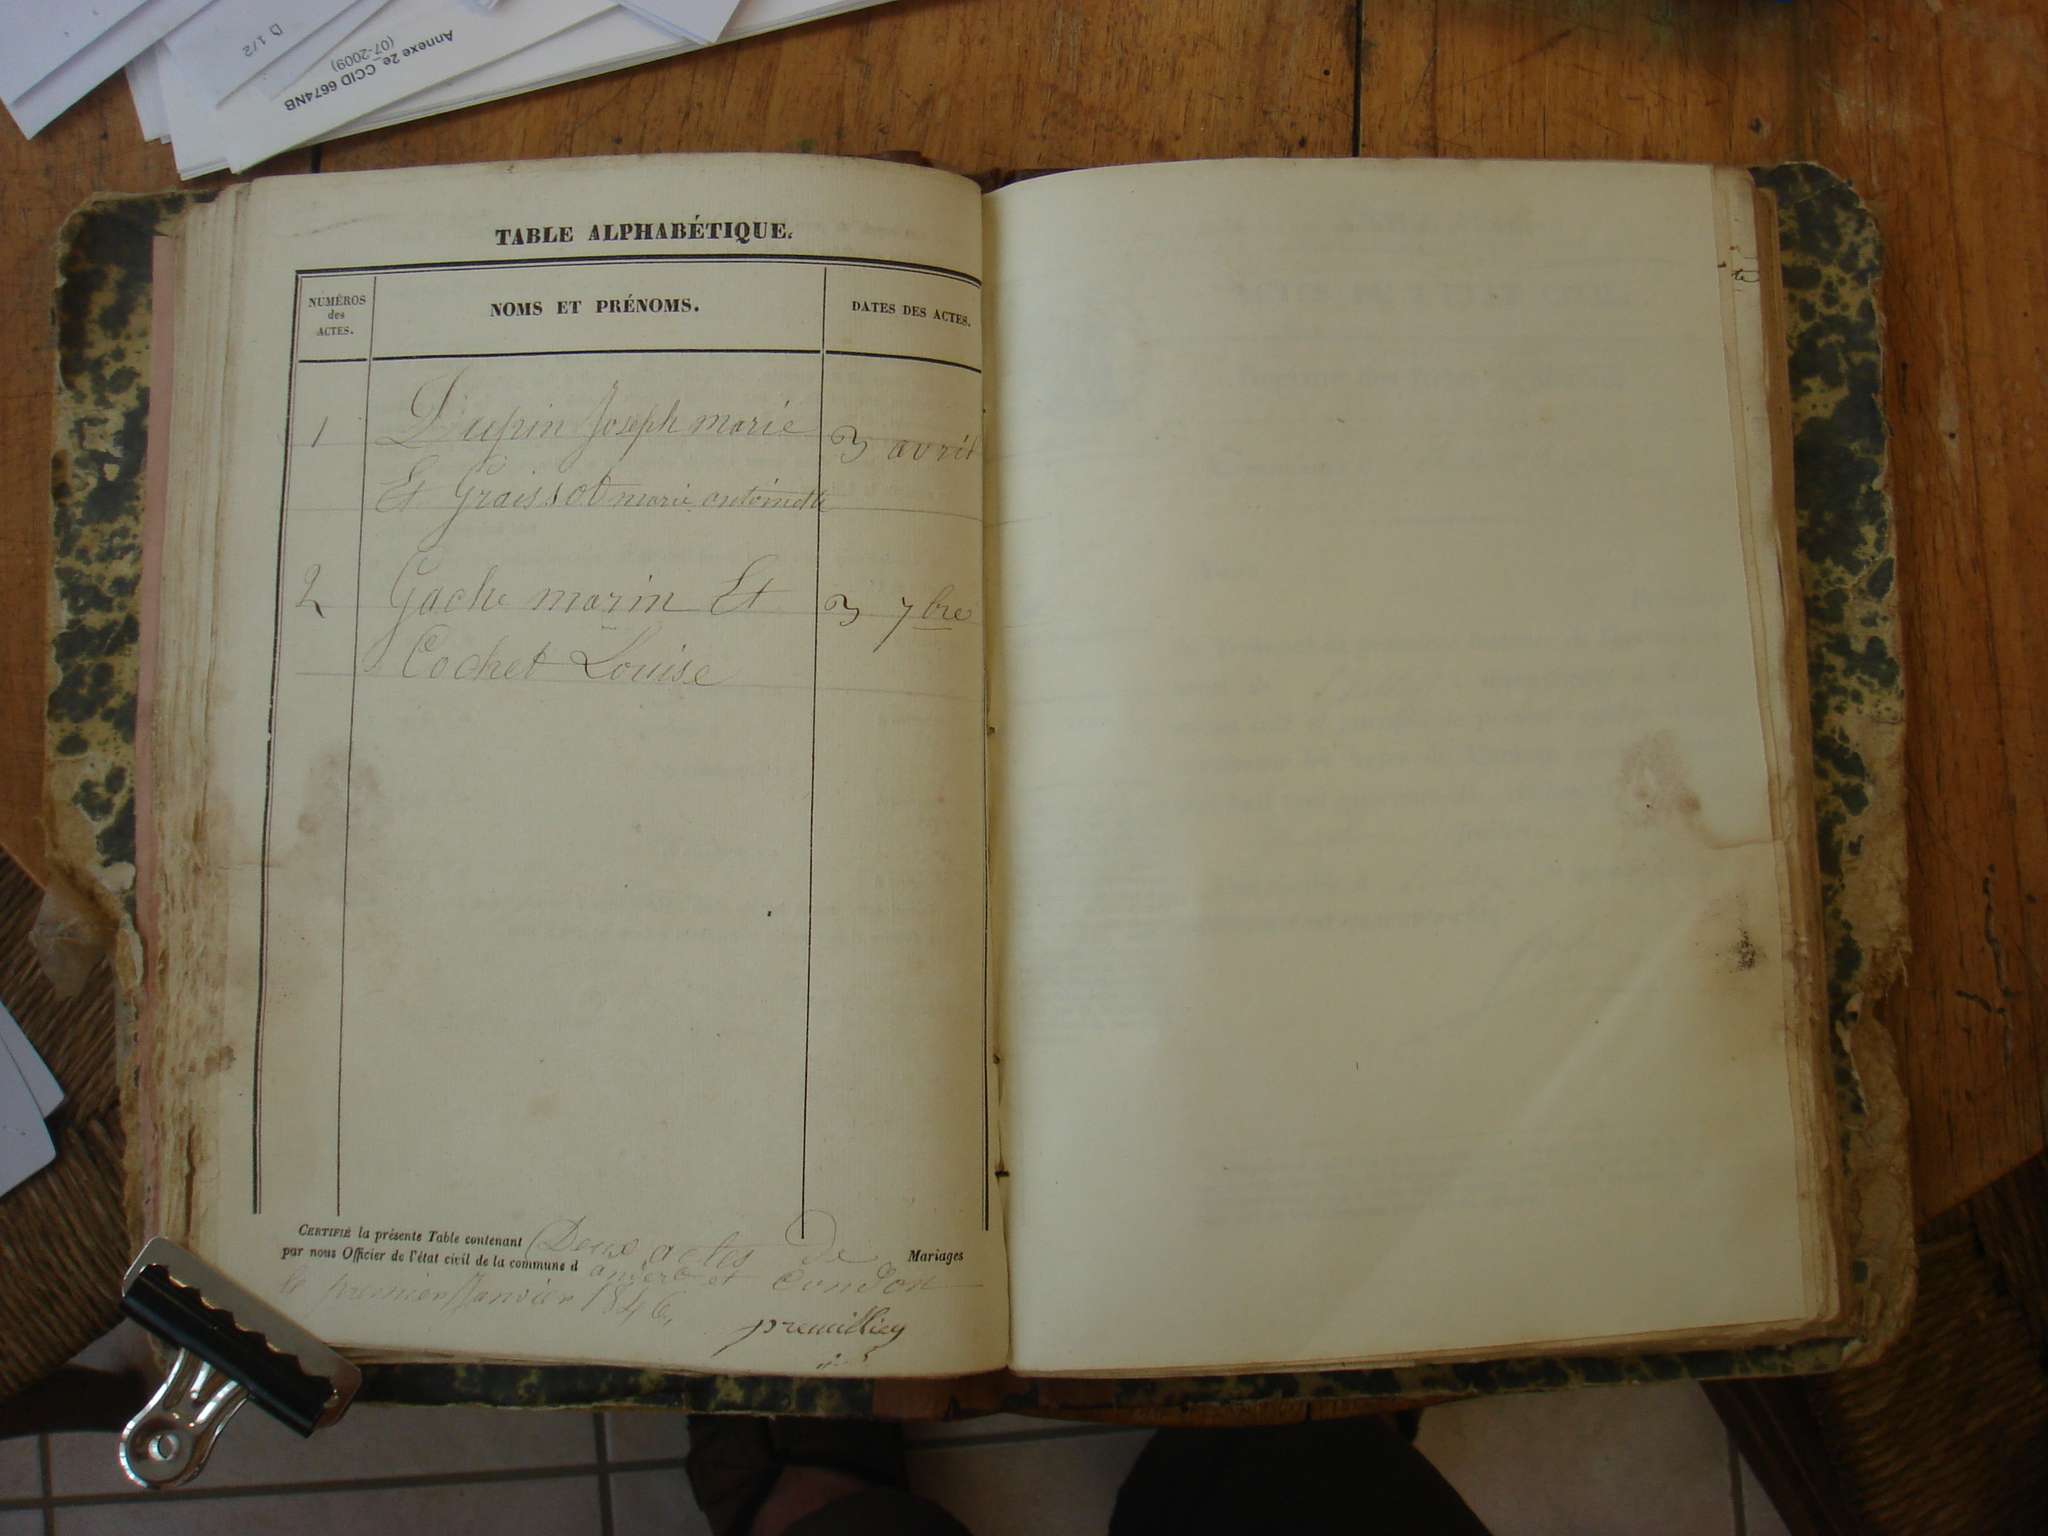 D 1/2
Annexe 2e. CCID 6674NB
(07-2009)
TABLE ALPHABÉTIQUE.
NUMÉROS des ACTES.
NOMS ET PRÉNOMS.
DATES DES ACTES.
1 Dupin Joseph marie 3 avril
Et Graissot marie antoinette
2 Gache marin Et 3 7bre
Cochet Louise
CERTIFIÉ la présente Table contenant Deux actes de Mariages
par nous Officier de l'état civil de la commune d anvers et Condon
le premier Janvier 1846,